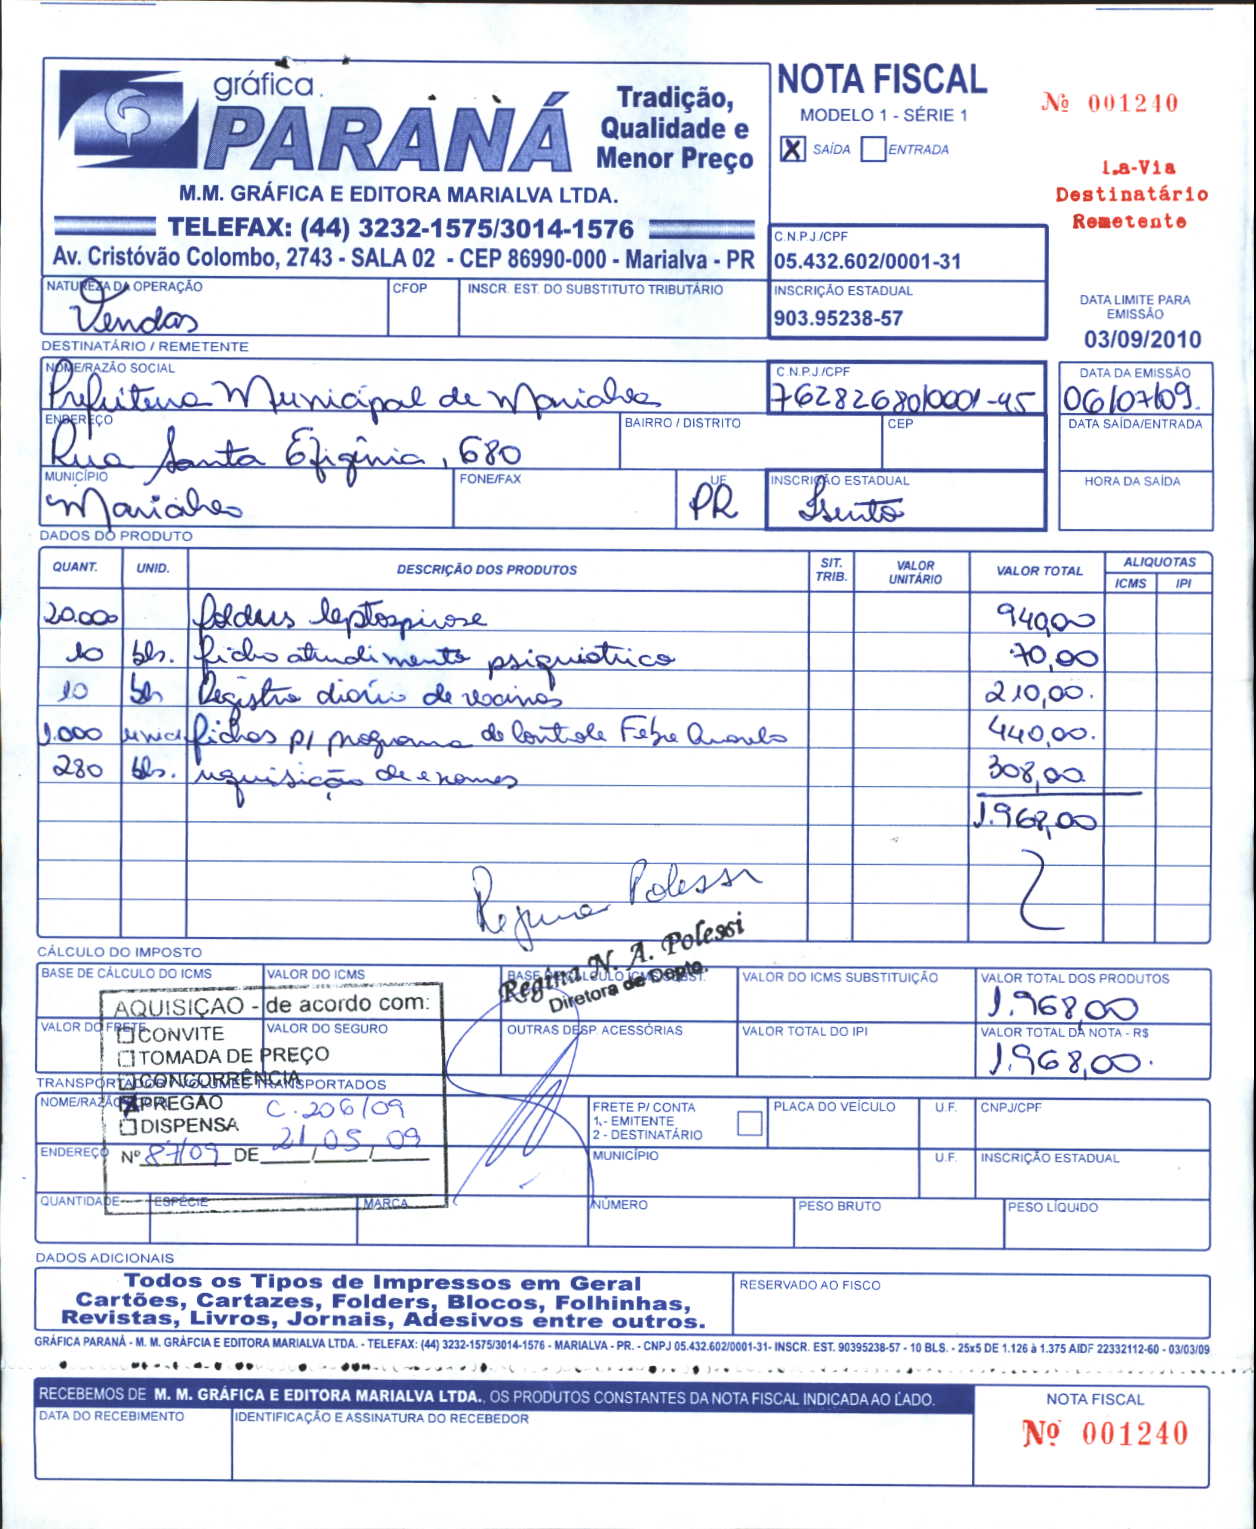 gráfica
PARANÁ
Tradição,
Qualidade e
Menor Preço
M.M. GRÁFICA E EDITORA MARIALVA LTDA.
TELEFAX: (44) 3232-1575/3014-1576
Av. Cristóvão Colombo, 2743 - SALA 02 - CEP 86990-000 - Marialva - PR
NOTA FISCAL
MODELO 1 - SÉRIE 1
X SAÍDA ENTRADA
Nº 001240
1.a-Via
Destinatário
Remetente
C.N.P.J./CPF
05.432.602/0001-31
NATUREZA DA OPERAÇÃO CFOP INSCR. EST. DO SUBSTITUTO TRIBUTÁRIO INSCRIÇÃO ESTADUAL
Vendas 903.95238-57
DATA LIMITE PARA
EMISSÃO
03/09/2010
DESTINATÁRIO / REMETENTE
NOME/RAZÃO SOCIAL C.N.P.J./CPF DATA DA EMISSÃO
Prefeitura Municipal de Marialva 76282680/0001-45 06/07/09.
ENDEREÇO BAIRRO / DISTRITO CEP DATA SAÍDA/ENTRADA
Rua Santa Efigênia, 680
MUNICÍPIO FONE/FAX UF INSCRIÇÃO ESTADUAL HORA DA SAÍDA
Marialva PR Isento
DADOS DO PRODUTO
QUANT. UNID. DESCRIÇÃO DOS PRODUTOS SIT. TRIB. VALOR UNITÁRIO VALOR TOTAL ALIQUOTAS
ICMS IPI
20.000 folders leptospirose 940,00
10 bls. ficha atendimento psiquiatrico 70,00
10 bls Registro diário de vacinas 210,00.
1.000 unid. fichas p/ programa de Controle Febre Amarela 440,00.
280 bls. requisição de exames 308,00
1.968,00
Regina Polessi
Regina N. A. Polessi
Diretora de Depto.
CÁLCULO DO IMPOSTO
BASE DE CÁLCULO DO ICMS VALOR DO ICMS BASE DE CÁLCULO ICMS SUBST. VALOR DO ICMS SUBSTITUIÇÃO VALOR TOTAL DOS PRODUTOS
1.968,00
VALOR DO FRETE VALOR DO SEGURO OUTRAS DESP. ACESSÓRIAS VALOR TOTAL DO IPI VALOR TOTAL DA NOTA - R$
1.968,00.
AQUISIÇÃO - de acordo com:
CONVITE
TOMADA DE PREÇO
CONCORRÊNCIA
X PREGÃO C. 206/09
DISPENSA
Nº 87/09 DE 21/05/09
TRANSPORTADOR / VOLUMES TRANSPORTADOS
NOME/RAZÃO SOCIAL FRETE P/ CONTA PLACA DO VEÍCULO U.F. CNPJ/CPF
1.- EMITENTE
2 - DESTINATÁRIO
ENDEREÇO MUNICÍPIO U.F. INSCRIÇÃO ESTADUAL
QUANTIDADE ESPÉCIE MARCA NÚMERO PESO BRUTO PESO LÍQUIDO
DADOS ADICIONAIS
Todos os Tipos de Impressos em Geral
Cartões, Cartazes, Folders, Blocos, Folhinhas,
Revistas, Livros, Jornais, Adesivos entre outros.
RESERVADO AO FISCO
GRÁFICA PARANÁ - M. M. GRÁFCIA E EDITORA MARIALVA LTDA. - TELEFAX: (44) 3232-1575/3014-1576 - MARIALVA - PR. - CNPJ 05.432.602/0001-31- INSCR. EST. 90395238-57 - 10 BLS. - 25x5 DE 1.126 à 1.375 AIDF 22332112-60 - 03/03/09
RECEBEMOS DE M. M. GRÁFICA E EDITORA MARIALVA LTDA., OS PRODUTOS CONSTANTES DA NOTA FISCAL INDICADA AO LADO.
DATA DO RECEBIMENTO IDENTIFICAÇÃO E ASSINATURA DO RECEBEDOR
NOTA FISCAL
Nº 001240